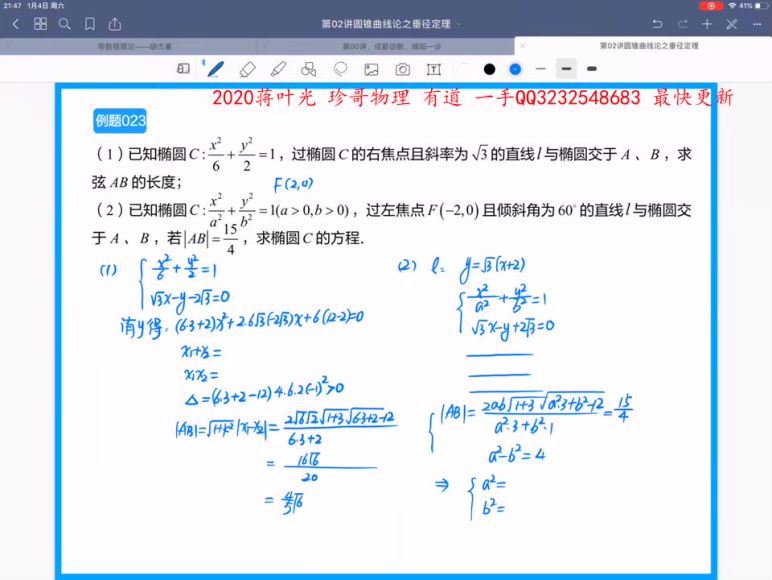 21:47 1月4日 周六
41%
第02讲圆锥曲线论之垂径定理
导数极限论——胡杰著
第00讲，成都诊断，绵阳一诊
第02讲圆锥曲线论之垂径定理
2020蒋叶光 珍哥物理 有道 一手QQ3232548683 最快更新
例题023
（1）已知椭圆 C : x²/6 + y²/2 = 1，过椭圆 C 的右焦点且斜率为 √3 的直线 l 与椭圆交于 A 、B ，求
弦 AB 的长度；
F(2,0)
（2）已知椭圆 C : x²/a² + y²/b² = 1(a > 0, b > 0)，过左焦点 F(−2,0) 且倾斜角为 60° 的直线 l 与椭圆交
于 A 、B ，若 |AB| = 15/4 ，求椭圆 C 的方程.
(1) { x²/6 + y²/2 = 1
√3x-y-2√3=0
消y得: (6·3+2)x²+2·6√3(-2√3)x+6(12-2)=0
x₁+x₂=
x₁x₂=
Δ=(6·3+2-12)4·6·2(-1)²>0
|AB|=√(1+k²)|x₁-x₂|= 2√6√2√(1+3)√(6·3+2-12) / (6·3+2)
= 16√6/20
= 4/5√6
(2) l: y=√3(x+2)
{ x²/a² + y²/b² = 1
√3x-y+2√3=0
{ |AB|= 2ab√(1+3)√(a²·3+b²-12) / (a²·3+b²·1) = 15/4
a²-b²=4
⇒ { a²=
b²=